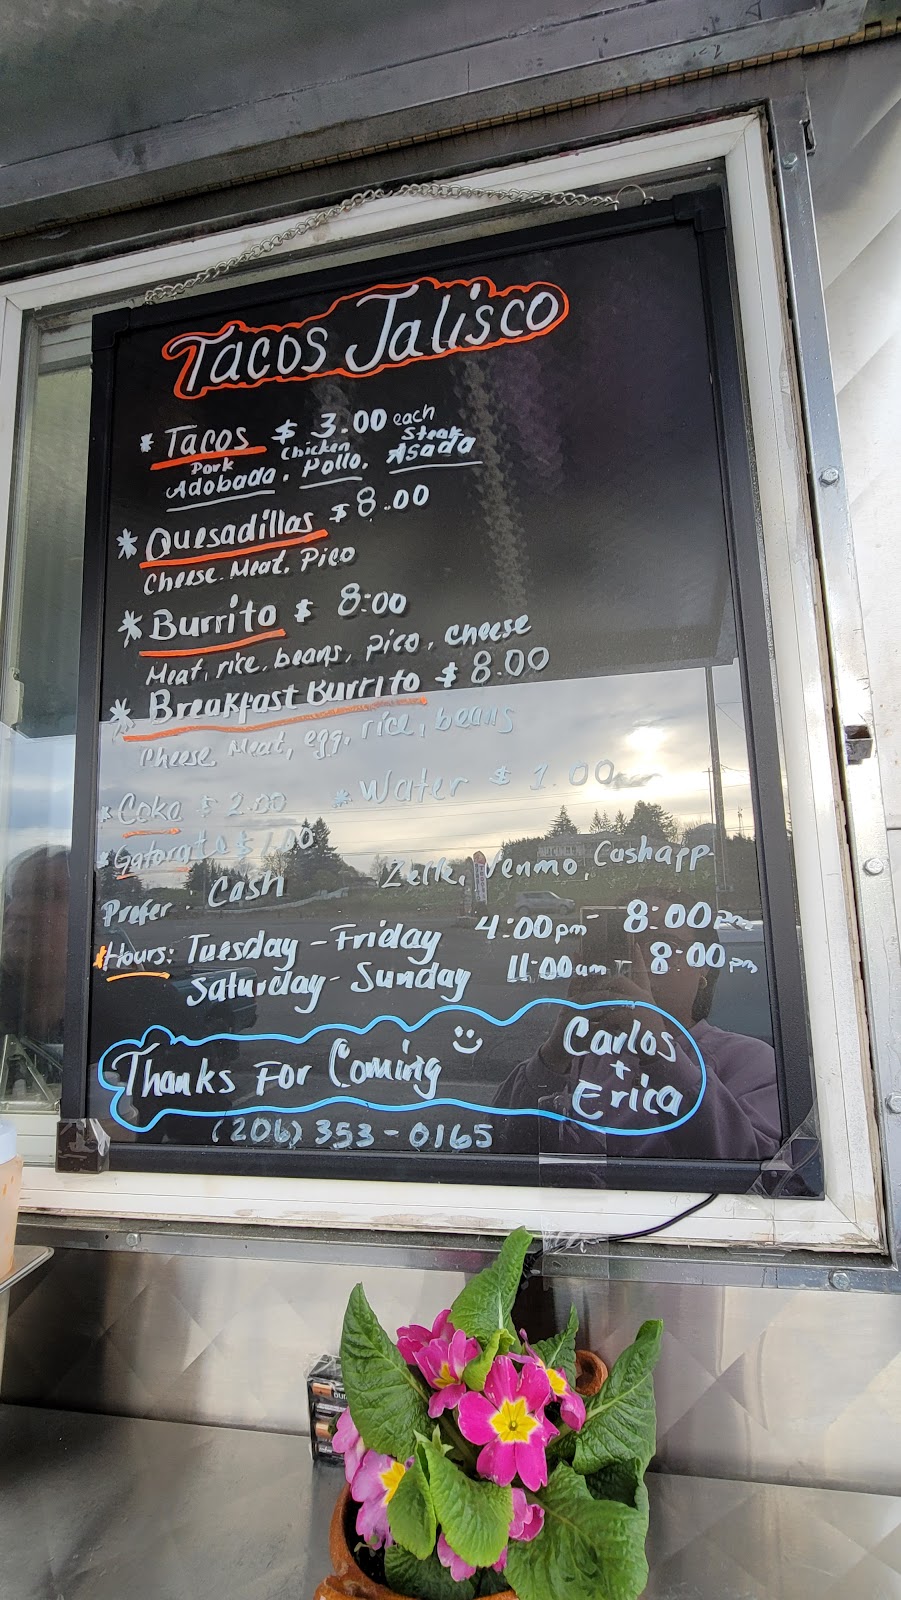 Tacos Jalisco
* Tacos $ 3.00 each
Pork Chicken Steak
Adobada. Pollo. Asada
* Quesadillas $8.00
Cheese. Meat. Pico
* Burrito $ 8:00
Meat, rice, beans, pico, cheese
* Breakfast Burrito $ 8.00
Cheese, Meat, egg, rice, beans
* Coke $ 2.00 * Water $ 1.00
* Gatorate $1.00
Prefer. Cash Zelle, Venmo, Cashapp
* Hours: Tuesday - Friday 4:00pm - 8:00pm
Saturday - Sunday 11:00am - 8:00pm
Thanks For Coming Carlos
+
Erica
(206) 353-0165